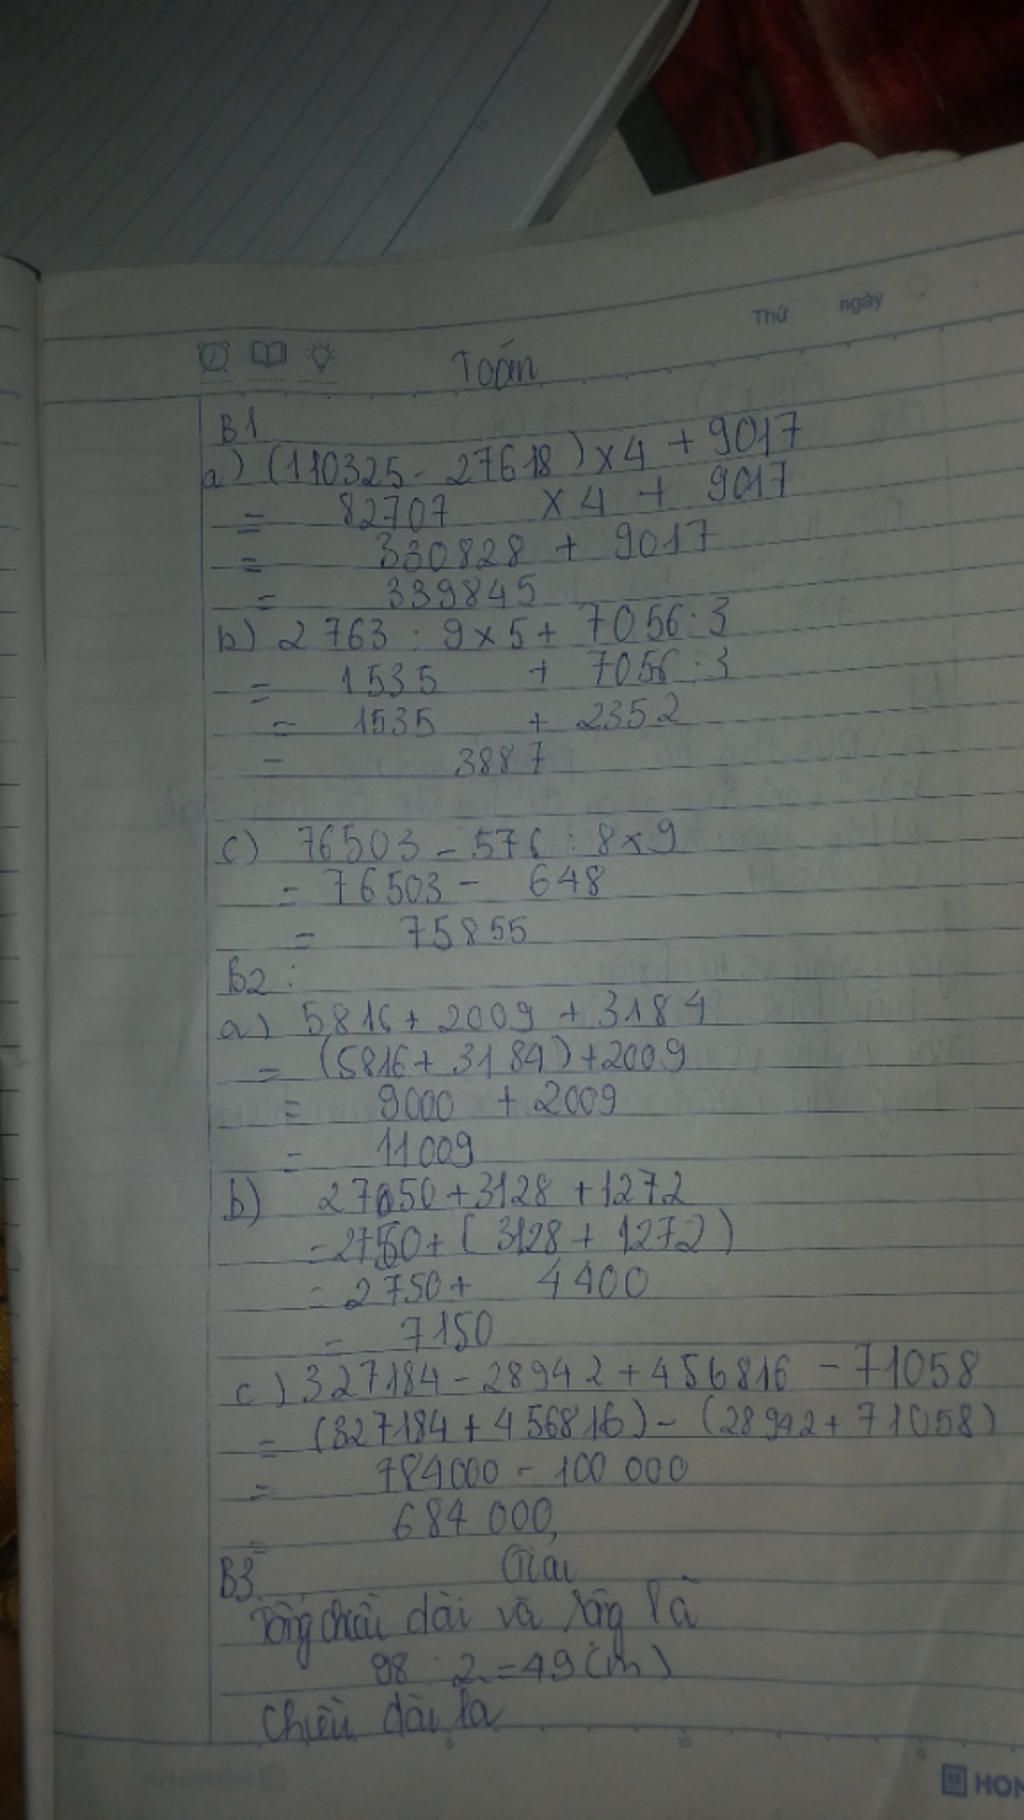 Thứ ngày
Toán
B1
a) (110325 - 27618) x 4 + 9017
= 82707 x 4 + 9017
= 330828 + 9017
= 339845
b) 2763 : 9 x 5 + 7056 : 3
= 1535 + 7056 : 3
= 1535 + 2352
= 3887
c) 76503 - 576 : 8 x 9
= 76503 - 648
= 75855
B2 :
a) 5816 + 2009 + 3184
= (5816 + 3184) + 2009
= 9000 + 2009
= 11009
b) 27050 + 3128 + 1272
= 2750 + ( 3128 + 1272 )
= 2750 + 4400
= 7150
c) 327184 - 28942 + 456816 - 71058
= (327184 + 456816) - (28942 + 71058)
= 784000 - 100 000
= 684 000
B3 Giải
Tổng chiều dài và rộng là
98 : 2 = 49 (m)
Chiều dài là
5 10 15
HON